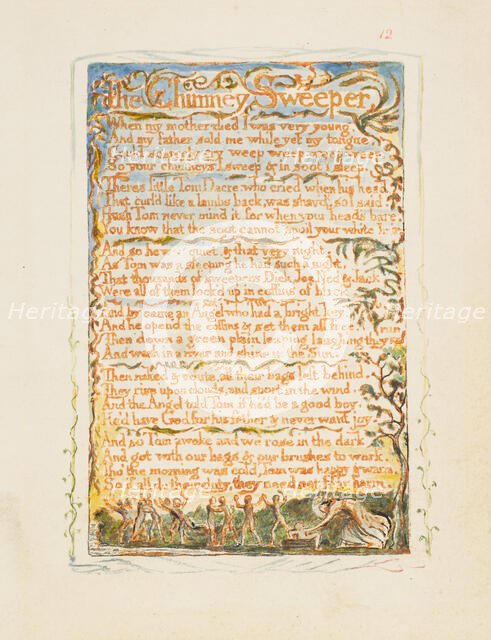 12
The Chimney Sweeper
When my mother died I was very young,
And my father sold me while yet my tongue,
Could scarcely cry weep weep weep weep.
So your chimneys I sweep & in soot I sleep.
Theres little Tom Dacre who cried when his head
That curl'd like a lambs back, was shav'd, so I said.
Hush Tom never mind it, for when your head's bare,
You know that the soot cannot spoil your white hair
And so he was quiet, & that very night,
As Tom was a sleeping he had such a sight,
That thousands of sweepers Dick, Joe, Ned & Jack
Were all of them lock'd up in coffins of black,
And by came an Angel who had a bright key,
And he open'd the coffins & set them all free.
Then down a green plain leaping laughing they run
And wash in a river and shine in the Sun.
Then naked & white, all their bags left behind,
They rise upon clouds, and sport in the wind.
And the Angel told Tom if he'd be a good boy,
He'd have God for his father & never want joy.
And so Tom awoke and we rose in the dark
And got with our bags & our brushes to work.
Tho' the morning was cold, Tom was happy & warm,
So if all do their duty, they need not fear harm.
Heritage Heritage
Heritage